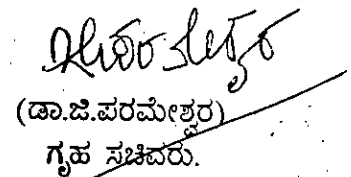 (ಡಾ.ಜಿ.ಪರಮೇಶ್ವರ)
ಗೃಹ ಸಚಿವರು.